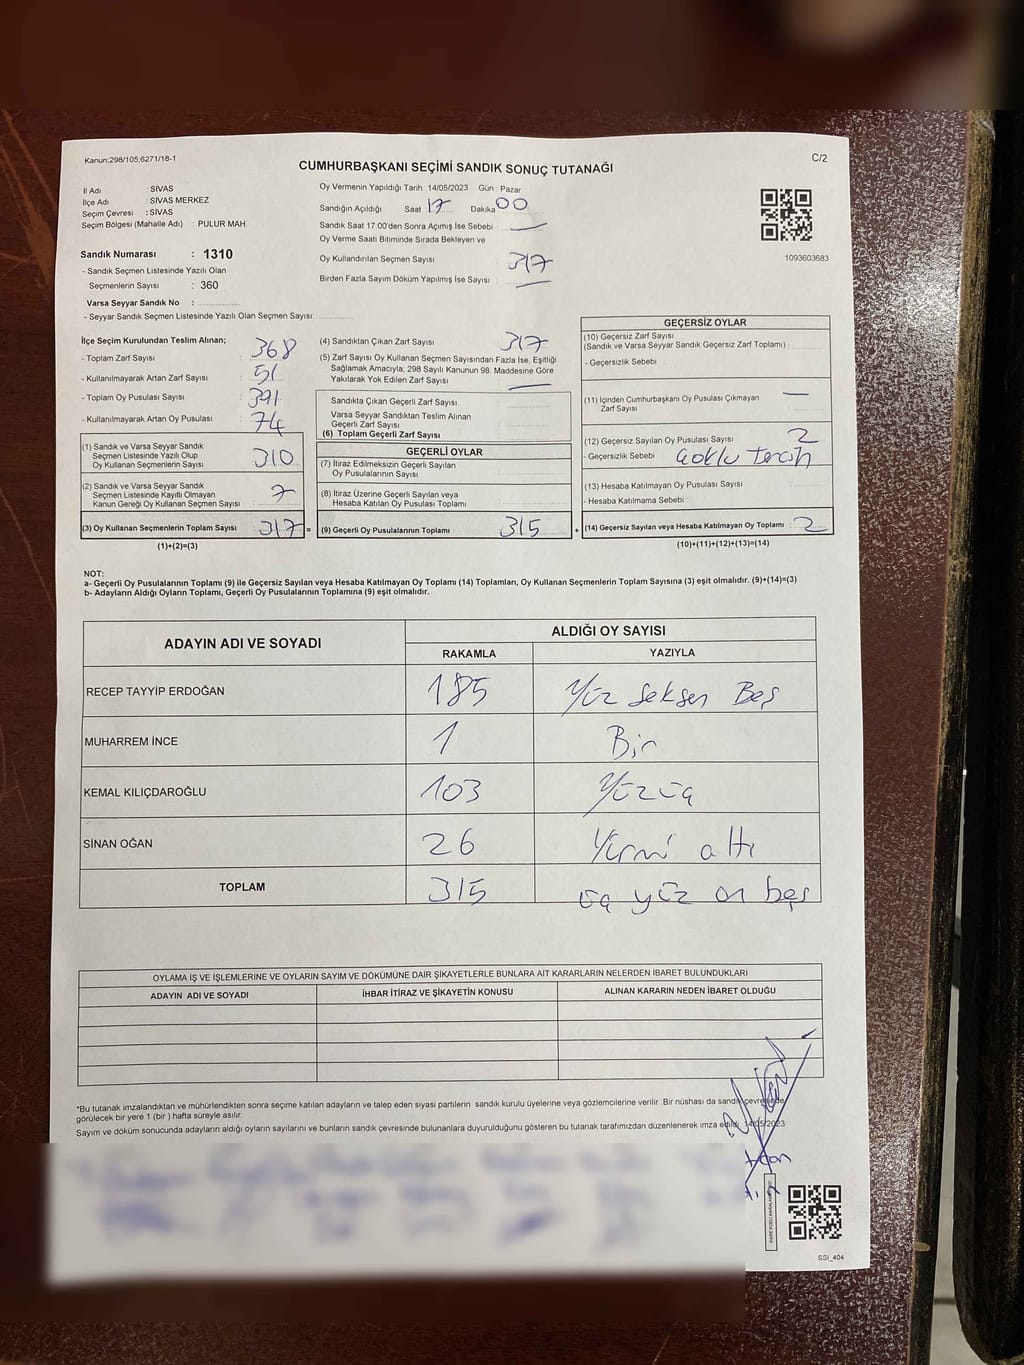 Kanun;298/105,6271/18-1
CUMHURBAŞKANI SEÇİMİ SANDIK SONUÇ TUTANAĞI
C/2
İl Adı : SİVAS
İlçe Adı : SİVAS MERKEZ
Seçim Çevresi : SİVAS
Seçim Bölgesi (Mahalle Adı) : PULUR MAH.
Sandık Numarası : 1310
- Sandık Seçmen Listesinde Yazılı Olan
Seçmenlerin Sayısı : 360
Varsa Seyyar Sandık No :
- Seyyar Sandık Seçmen Listesinde Yazılı Olan Seçmen Sayısı:
Oy Vermenin Yapıldığı Tarih : 14/05/2023 Gün : Pazar
Sandığın Açıldığı Saat 17 Dakika 00
Sandık Saat 17:00'den Sonra Açımış İse Sebebi :
Oy Verme Saati Bitiminde Sırada Bekleyen ve
Oy Kullandırılan Seçmen Sayısı : 317
Birden Fazla Sayım Döküm Yapılmış İse Sayısı :
1093603683
İlçe Seçim Kurulundan Teslim Alınan;
- Toplam Zarf Sayısı : 368
- Kullanılmayarak Artan Zarf Sayısı : 51
- Toplam Oy Pusulası : 391
- Kullanılmayarak Artan Oy Pusulası : 74
(1) Sandık ve Varsa Seyyar Sandık
Seçmen Listesinde Yazılı Olup
Oy Kullanan Seçmenlerin Sayısı : 310
(2) Sandık ve Varsa Seyyar Sandık
Seçmen Listesinde Kayıtlı Olmayan
Kanun Gereği Oy Kullanan Seçmen Sayısı : 7
(3) Oy Kullanan Seçmenlerin Toplam Sayısı : 317 =
(1)+(2)=(3)
(4) Sandıktan Çıkan Zarf Sayısı : 317
(5) Zarf Sayısı Oy Kullanan Seçmen Sayısından Fazla İse, Eşitliği
Sağlamak Amacıyla; 298 Sayılı Kanunun 98. Maddesine Göre
Yakılarak Yok Edilen Zarf Sayısı :
Sandıkta Çıkan Geçerli Zarf Sayısı :
Varsa Seyyar Sandıktan Teslim Alınan
Geçerli Zarf Sayısı :
(6) Toplam Geçerli Zarf Sayısı :
GEÇERLİ OYLAR
(7) İtiraz Edilmeksizin Geçerli Sayılan
Oy Pusulalarının Sayısı :
(8) İtiraz Üzerine Geçerli Sayılan veya
Hesaba Katılan Oy Pusulası Toplamı :
(9) Geçerli Oy Pusulalarının Toplamı : 315 +
GEÇERSİZ OYLAR
(10) Geçersiz Zarf Sayısı
(Sandık ve Varsa Seyyar Sandık Geçersiz Zarf Toplamı) :
- Geçersizlik Sebebi :
(11) İçinden Cumhurbaşkanı Oy Pusulası Çıkmayan
Zarf Sayısı :
(12) Geçersiz Sayılan Oy Pusulası Sayısı : 2
- Geçersizlik Sebebi : çoklu tercih
(13) Hesaba Katılmayan Oy Pusulası Sayısı :
- Hesaba Katılmama Sebebi :
(14) Geçersiz Sayılan veya Hesaba Katılmayan Oy Toplamı : 2
(10)+(11)+(12)+(13)=(14)
NOT:
a- Geçerli Oy Pusulalarının Toplamı (9) ile Geçersiz Sayılan veya Hesaba Katılmayan Oy Toplamı (14) Toplamları, Oy Kullanan Seçmenlerin Toplam Sayısına (3) eşit olmalıdır. (9)+(14)=(3)
b- Adayların Aldığı Oyların Toplamı, Geçerli Oy Pusulalarının Toplamına (9) eşit olmalıdır.
ADAYIN ADI VE SOYADI ALDIĞI OY SAYISI
RAKAMLA YAZIYLA
RECEP TAYYİP ERDOĞAN 185 Yüz seksen Beş
MUHARREM İNCE 1 Bir
KEMAL KILIÇDAROĞLU 103 Yüzüç
SİNAN OĞAN 26 Yirmi altı
TOPLAM 315 üç yüz on beş
OYLAMA İŞ VE İŞLEMLERİNE VE OYLARIN SAYIM VE DÖKÜMÜNE DAİR ŞİKAYETLERLE BUNLARA AİT KARARLARIN NELERDEN İBARET BULUNDUKLARI
ADAYIN ADI VE SOYADI İHBAR İTİRAZ VE ŞİKAYETİN KONUSU ALINAN KARARIN NEDEN İBARET OLDUĞU
*Bu tutanak imzalandıktan ve mühürlendikten sonra seçime katılan adayların ve talep eden siyasi partilerin sandık kurulu üyelerine veya gözlemcilerine verilir. Bir nüshası da sandık çevresinde
görülecek bir yere 1 (bir ) hafta süreyle asılır.
Sayım ve döküm sonucunda adayların aldığı oyların sayılarını ve bunların sandık çevresinde bulunanlara duyurulduğunu gösteren bu tutanak tarafımızdan düzenlenerek imza edildi. 14/05/2023
SSİ_404